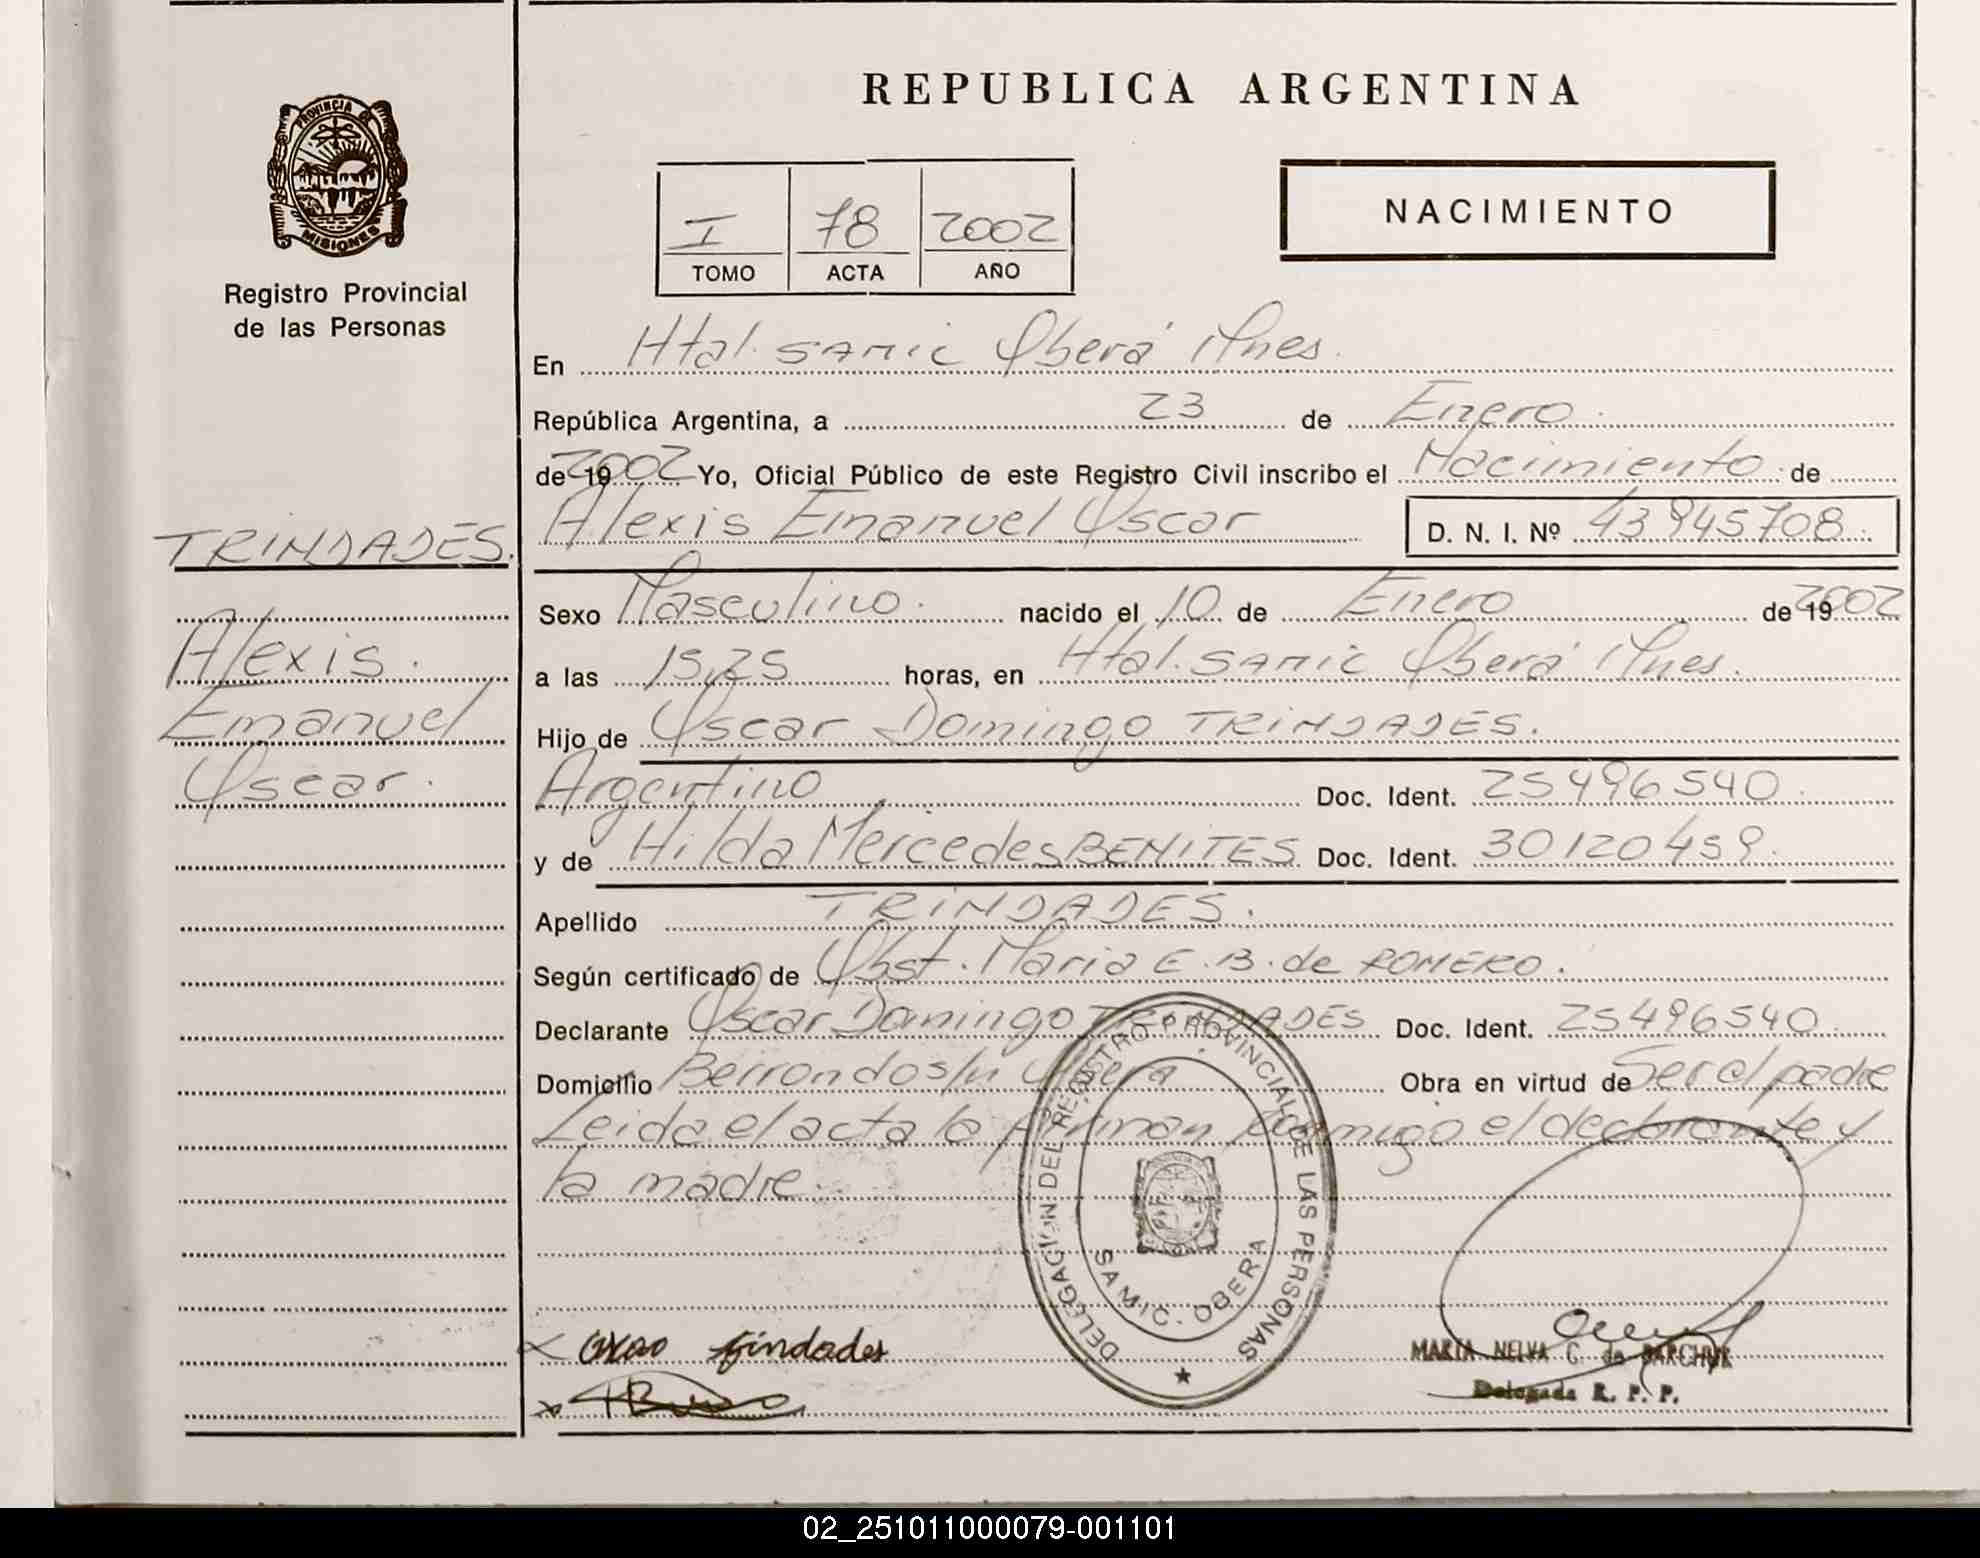 REPUBLICA ARGENTINA
PROVINCIA DE MISIONES
Registro Provincial
de las Personas
I 78 2002
TOMO ACTA AÑO
NACIMIENTO
En Htal. SAMIC Oberá Mnes.
República Argentina, a 23 de Enero.
de 19 2002 Yo, Oficial Público de este Registro Civil inscribo el Nacimiento de
Alexis Emanuel Oscar D. N. I. Nº 43945708.
TRINDADES.
Alexis.
Emanuel
Oscar.
Sexo Masculino. nacido el 10 de Enero de 19 2002
a las 15,25 horas, en Htal. SAMIC Oberá Mnes.
Hijo de Oscar Domingo TRINDADES.
Argentino Doc. Ident. 25496540.
y de Hilda Mercedes BENITES. Doc. Ident. 30120459.
Apellido TRINDADES.
Según certificado de Obst. Maria E. B. de ROMERO.
Declarante Oscar Domingo TRINDADES Doc. Ident. 25496540.
Domicilio Berrondo s/n Oberá Obra en virtud de Ser el padre
Leida el acta la firman conmigo el declarante y
la madre.
DELEGACION DEL REGISTRO PROVINCIAL DE LAS PERSONAS
SAMIC - OBERA
x Trindades
x
MARIA NELVA C. de BARCHUK
Delegada R. P. P.
02_251011000079-001101